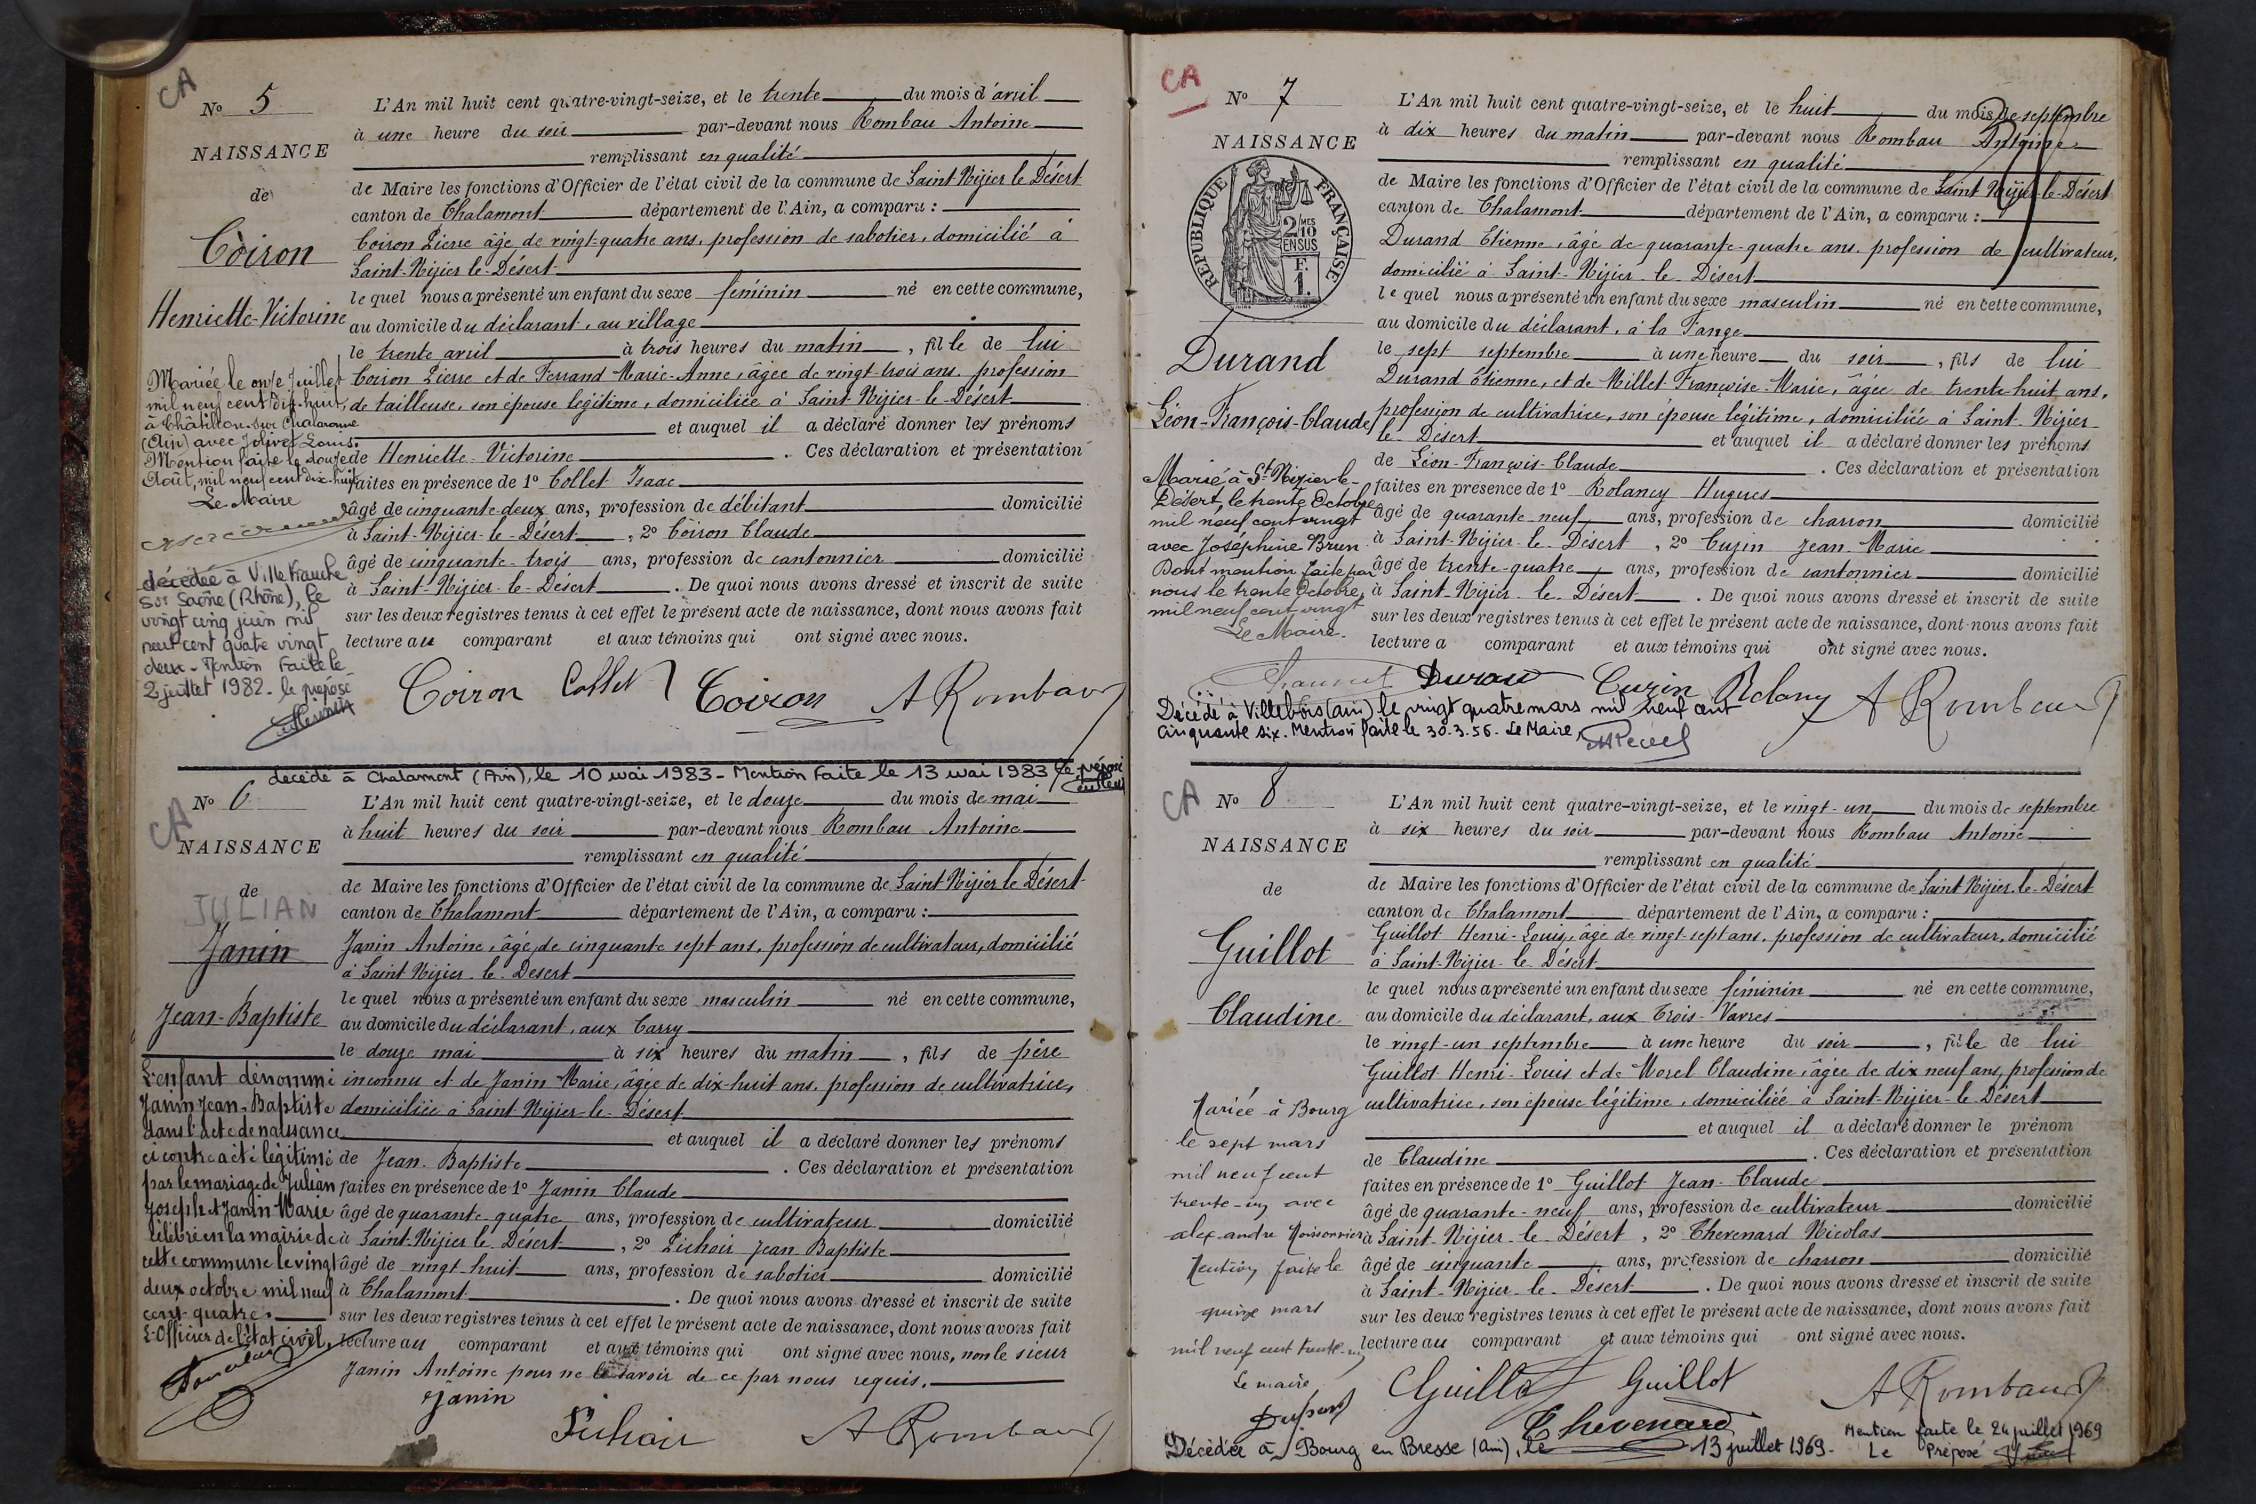 CA
No 5
NAISSANCE
de
Coiron
Henriette-Victorine
Mariée le onze Juillet
mil neuf cent dix-huit,
à Châtillon-sur Chalaronne
(Ain) avec Jolivet Louis.
Mention faite le douze
Août, mil neuf cent dix-huit
Le Maire
décédée à Villefranche
sur Saône (Rhône), le
vingt cinq juin mil
neuf cent quatre vingt
deux - Mention faite le
2 juillet 1982. le préposé
L'An mil huit cent quatre-vingt-seize, et le trente du mois d'avril
à une heure du soir par-devant nous Rombau Antoine
remplissant en qualité
de Maire les fonctions d'Officier de l'état civil de la commune de Saint-Nizier le Désert
canton de Chalamont département de l'Ain, a comparu :
Coiron Pierre âgé de vingt-quatre ans, profession de sabotier, domicilié à
Saint-Nizier le-Désert
le quel nous a présenté un enfant du sexe féminin né en cette commune,
au domicile du déclarant, au village
le trente avril à trois heures du matin, fille de lui
Coiron Pierre et de Ferrand Marie-Anne, âgée de vingt trois ans, profession
de tailleuse, son épouse légitime, domiciliée à Saint-Nizier-le-Désert
et auquel il a déclaré donner les prénoms
de Henriette-Victorine. Ces déclaration et présentation
faites en présence de 1º Collet Isaac
âgé de cinquante-deux ans, profession de débitant domicilié
à Saint-Nizier-le-Désert, 2º Coiron Claude
âgé de cinquante-trois ans, profession de cantonnier domicilié
à Saint-Nizier-le-Désert. De quoi nous avons dressé et inscrit de suite
sur les deux registres tenus à cet effet le présent acte de naissance, dont nous avons fait
lecture au comparant et aux témoins qui ont signé avec nous.
Coiron Collet Coiron A Rombau
décédé à Chalamont (Ain), le 10 mai 1983 - Mention faite le 13 mai 1983 le préposé
CA
No 6
NAISSANCE
de
JULIAN
Janin
Jean-Baptiste
L'enfant dénommé
Janin Jean-Baptiste
dans l'acte de naissance
ci contre a été légitimé
par le mariage de Julian
Joseph et Janin Marie
célébré en la mairie de
cette commune le vingt
deux octobre mil neuf
cent quatre.
L'Officier de l'état civil,
L'An mil huit cent quatre-vingt-seize, et le douze du mois de mai
à huit heures du soir par-devant nous Rombau Antoine
remplissant en qualité
de Maire les fonctions d'Officier de l'état civil de la commune de Saint-Nizier le Désert
canton de Chalamont département de l'Ain, a comparu :
Janin Antoine, âgé de cinquante sept ans, profession de cultivateur, domicilié
à Saint Nizier-le-Désert
le quel nous a présenté un enfant du sexe masculin né en cette commune,
au domicile du déclarant, aux Carry
le douze mai à six heures du matin, fils de père
inconnu et de Janin Marie, âgée de dix-huit ans, profession de cultivatrice,
domiciliée à Saint Nizier-le-Désert
et auquel il a déclaré donner les prénoms
de Jean-Baptiste. Ces déclaration et présentation
faites en présence de 1º Janin Claude
âgé de quarante-quatre ans, profession de cultivateur domicilié
à Saint-Nizier le Désert, 2º Pichoir Jean Baptiste
âgé de vingt-huit ans, profession de sabotier domicilié
à Chalamont. De quoi nous avons dressé et inscrit de suite
sur les deux registres tenus à cet effet le présent acte de naissance, dont nous avons fait
lecture au comparant et aux témoins qui ont signé avec nous, non le sieur
Janin Antoine pour ne le savoir de ce par nous requis.
Janin
Pichoir A Rombau
CA
No 7
NAISSANCE
RÉPUBLIQUE FRANÇAISE
2/10 MES
EN SUS
F.
1.
Durand
Léon-François-Claude
Marié à St Nizier-le-
Désert, le trente Octobre
mil neuf cent vingt
avec Joséphine Brun
Dont mention faite par
nous le trente Octobre
mil neuf cent vingt
Le Maire.
L'An mil huit cent quatre-vingt-seize, et le huit du mois de septembre
à dix heures du matin par-devant nous Rombau Antoine
remplissant en qualité
de Maire les fonctions d'Officier de l'état civil de la commune de Saint Nizier-le-Désert
canton de Chalamont département de l'Ain, a comparu :
Durand Etienne, âgé de quarante-quatre ans, profession de cultivateur,
domicilié à Saint-Nizier-le-Désert
le quel nous a présenté un enfant du sexe masculin né en cette commune,
au domicile du déclarant, à la Fange
le sept septembre à une heure du soir, fils de lui
Durand Étienne, et de Millet Françoise-Marie, âgée de trente-huit ans,
profession de cultivatrice, son épouse légitime, domiciliée à Saint-Nizier
le-Désert et auquel il a déclaré donner les prénoms
de Léon-François-Claude. Ces déclaration et présentation
faites en présence de 1º Rolancy Hugues
âgé de quarante-neuf ans, profession de charron domicilié
à Saint-Nizier-le-Désert, 2º Curin Jean-Marie
âgé de trente-quatre ans, profession de cantonnier domicilié
à Saint-Nizier-le-Désert. De quoi nous avons dressé et inscrit de suite
sur les deux registres tenus à cet effet le présent acte de naissance, dont nous avons fait
lecture a comparant et aux témoins qui ont signé avec nous.
Durand Curin Rolancy A Rombau
Décédé à Villebois (ain) le vingt quatre mars mil neuf cent
cinquante six. Mention faite le 30.3.56. Le Maire,
CA
No 8
NAISSANCE
de
Guillot
Claudine
Mariée à Bourg
le sept mars
mil neuf cent
trente-un avec
alexandre Moissonnier
Mention faite le
quinze mars
mil neuf cent trente-un
Le maire
L'An mil huit cent quatre-vingt-seize, et le vingt-un du mois de septembre
à six heures du soir par-devant nous Rombau Antoine
remplissant en qualité
de Maire les fonctions d'Officier de l'état civil de la commune de Saint Nizier-le-Désert
canton de Chalamont département de l'Ain, a comparu :
Guillot Henri-Louis, âgé de vingt-sept ans, profession de cultivateur, domicilié
à Saint-Nizier-le-Désert
le quel nous a présenté un enfant du sexe féminin né en cette commune,
au domicile du déclarant, aux Trois-Vavres
le vingt-un septembre à une heure du soir, fille de lui
Guillot Henri-Louis et de Morel Claudine, âgée de dix neuf ans, profession de
cultivatrice, son épouse légitime, domiciliée à Saint-Nizier-le Désert
et auquel il a déclaré donner le prénom
de Claudine. Ces déclaration et présentation
faites en présence de 1º Guillot Jean-Claude
âgé de quarante-neuf ans, profession de cultivateur domicilié
à Saint-Nizier-le-Désert, 2º Thevenard Nicolas
âgé de cinquante ans, profession de charron domicilié
à Saint-Nizier-le-Désert. De quoi nous avons dressé et inscrit de suite
sur les deux registres tenus à cet effet le présent acte de naissance, dont nous avons fait
lecture au comparant et aux témoins qui ont signé avec nous.
Guillot Guillot A Rombau
Thevenard
Décédée à Bourg en Bresse (Ain), le 13 juillet 1969.
Mention faite le 24 juillet 1969
Le Préposé